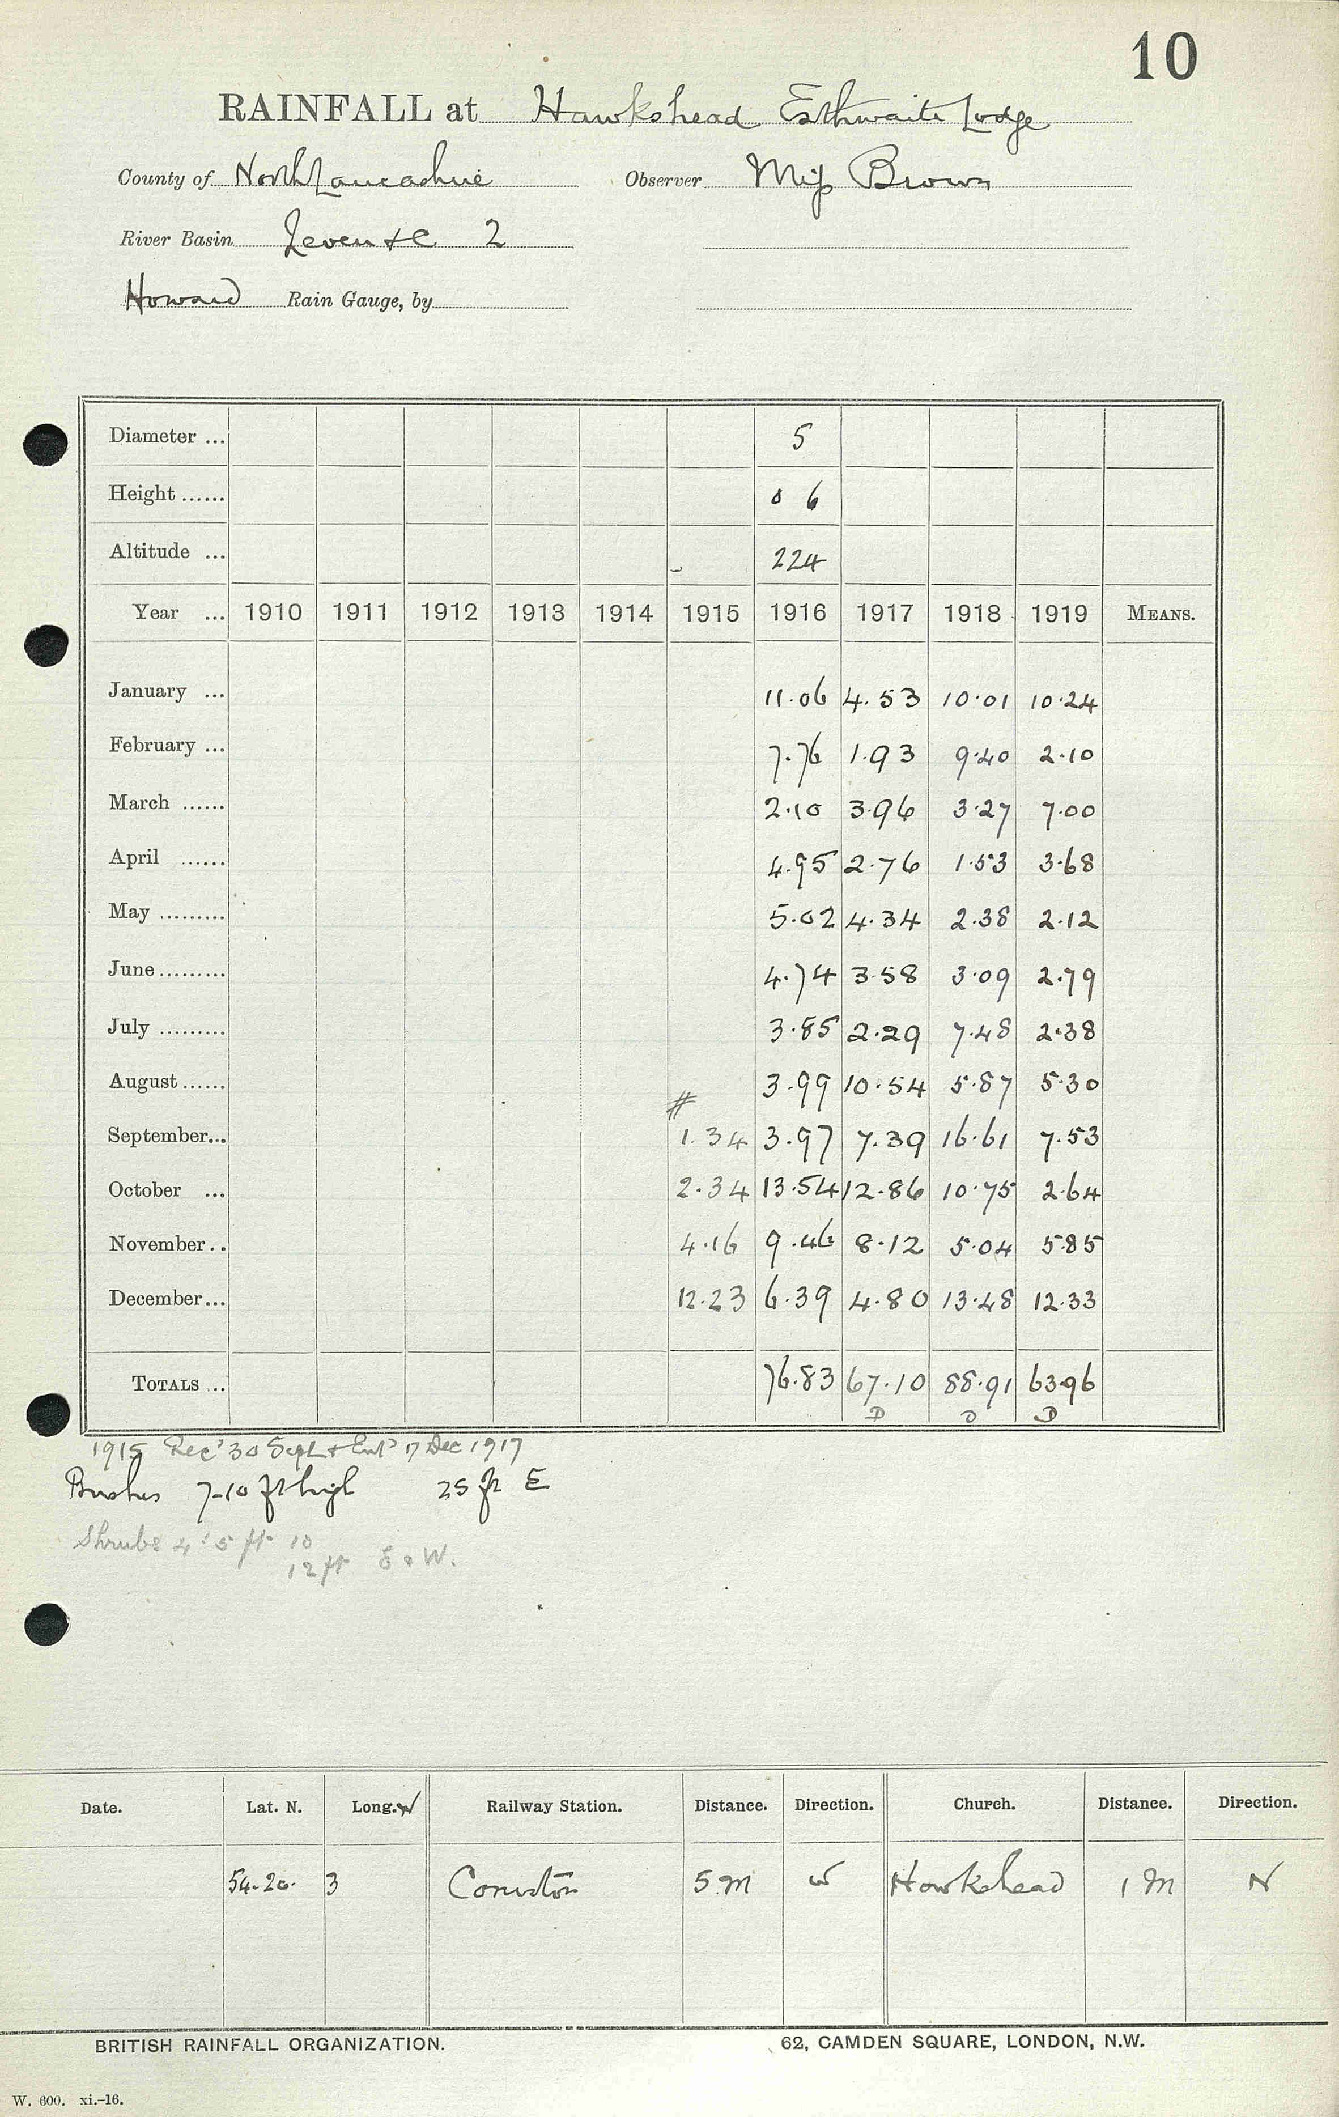 10
RAINFALL at Hawkshead Esthwaite Lodge
County of North Lancashire Observer Miss Brown
River Basin Leven &c 2
Howard Rain Gauge, by
Diameter ... 5
Height ...... 0 6
Altitude ... 224
Year ... 1910 1911 1912 1913 1914 1915 1916 1917 1918 1919 MEANS.
January ... 11.06 4.53 10.01 10.24
February ... 7.76 1.93 9.40 2.10
March ...... 2.10 3.96 3.27 7.00
April ...... 4.95 2.76 1.53 3.68
May ......... 5.02 4.34 2.38 2.12
June ......... 4.74 3.58 3.09 2.79
July ......... 3.85 2.29 7.48 2.38
August ...... 3.99 10.54 5.87 5.30
#
September... 1.34 3.97 7.39 16.61 7.53
October ... 2.34 13.54 12.86 10.75 2.64
November .. 4.16 9.46 8.12 5.04 5.85
December... 12.23 6.39 4.80 13.48 12.33
TOTALS ... 76.83 67.10 88.91 63.96
D D D
1915 Rec'd 30 Sept & Ent'd 17 Dec 1917
Bushes 7-10 ft high 25 ft E
Shrubs 4'5 ft 10
12 ft E & W.
Date. Lat. N. Long. W Railway Station. Distance. Direction. Church. Distance. Direction.
54.20. 3 Coniston 5 m W Hawkshead 1 m N
BRITISH RAINFALL ORGANIZATION. 62, CAMDEN SQUARE, LONDON, N.W.
W. 600. xi.-16.